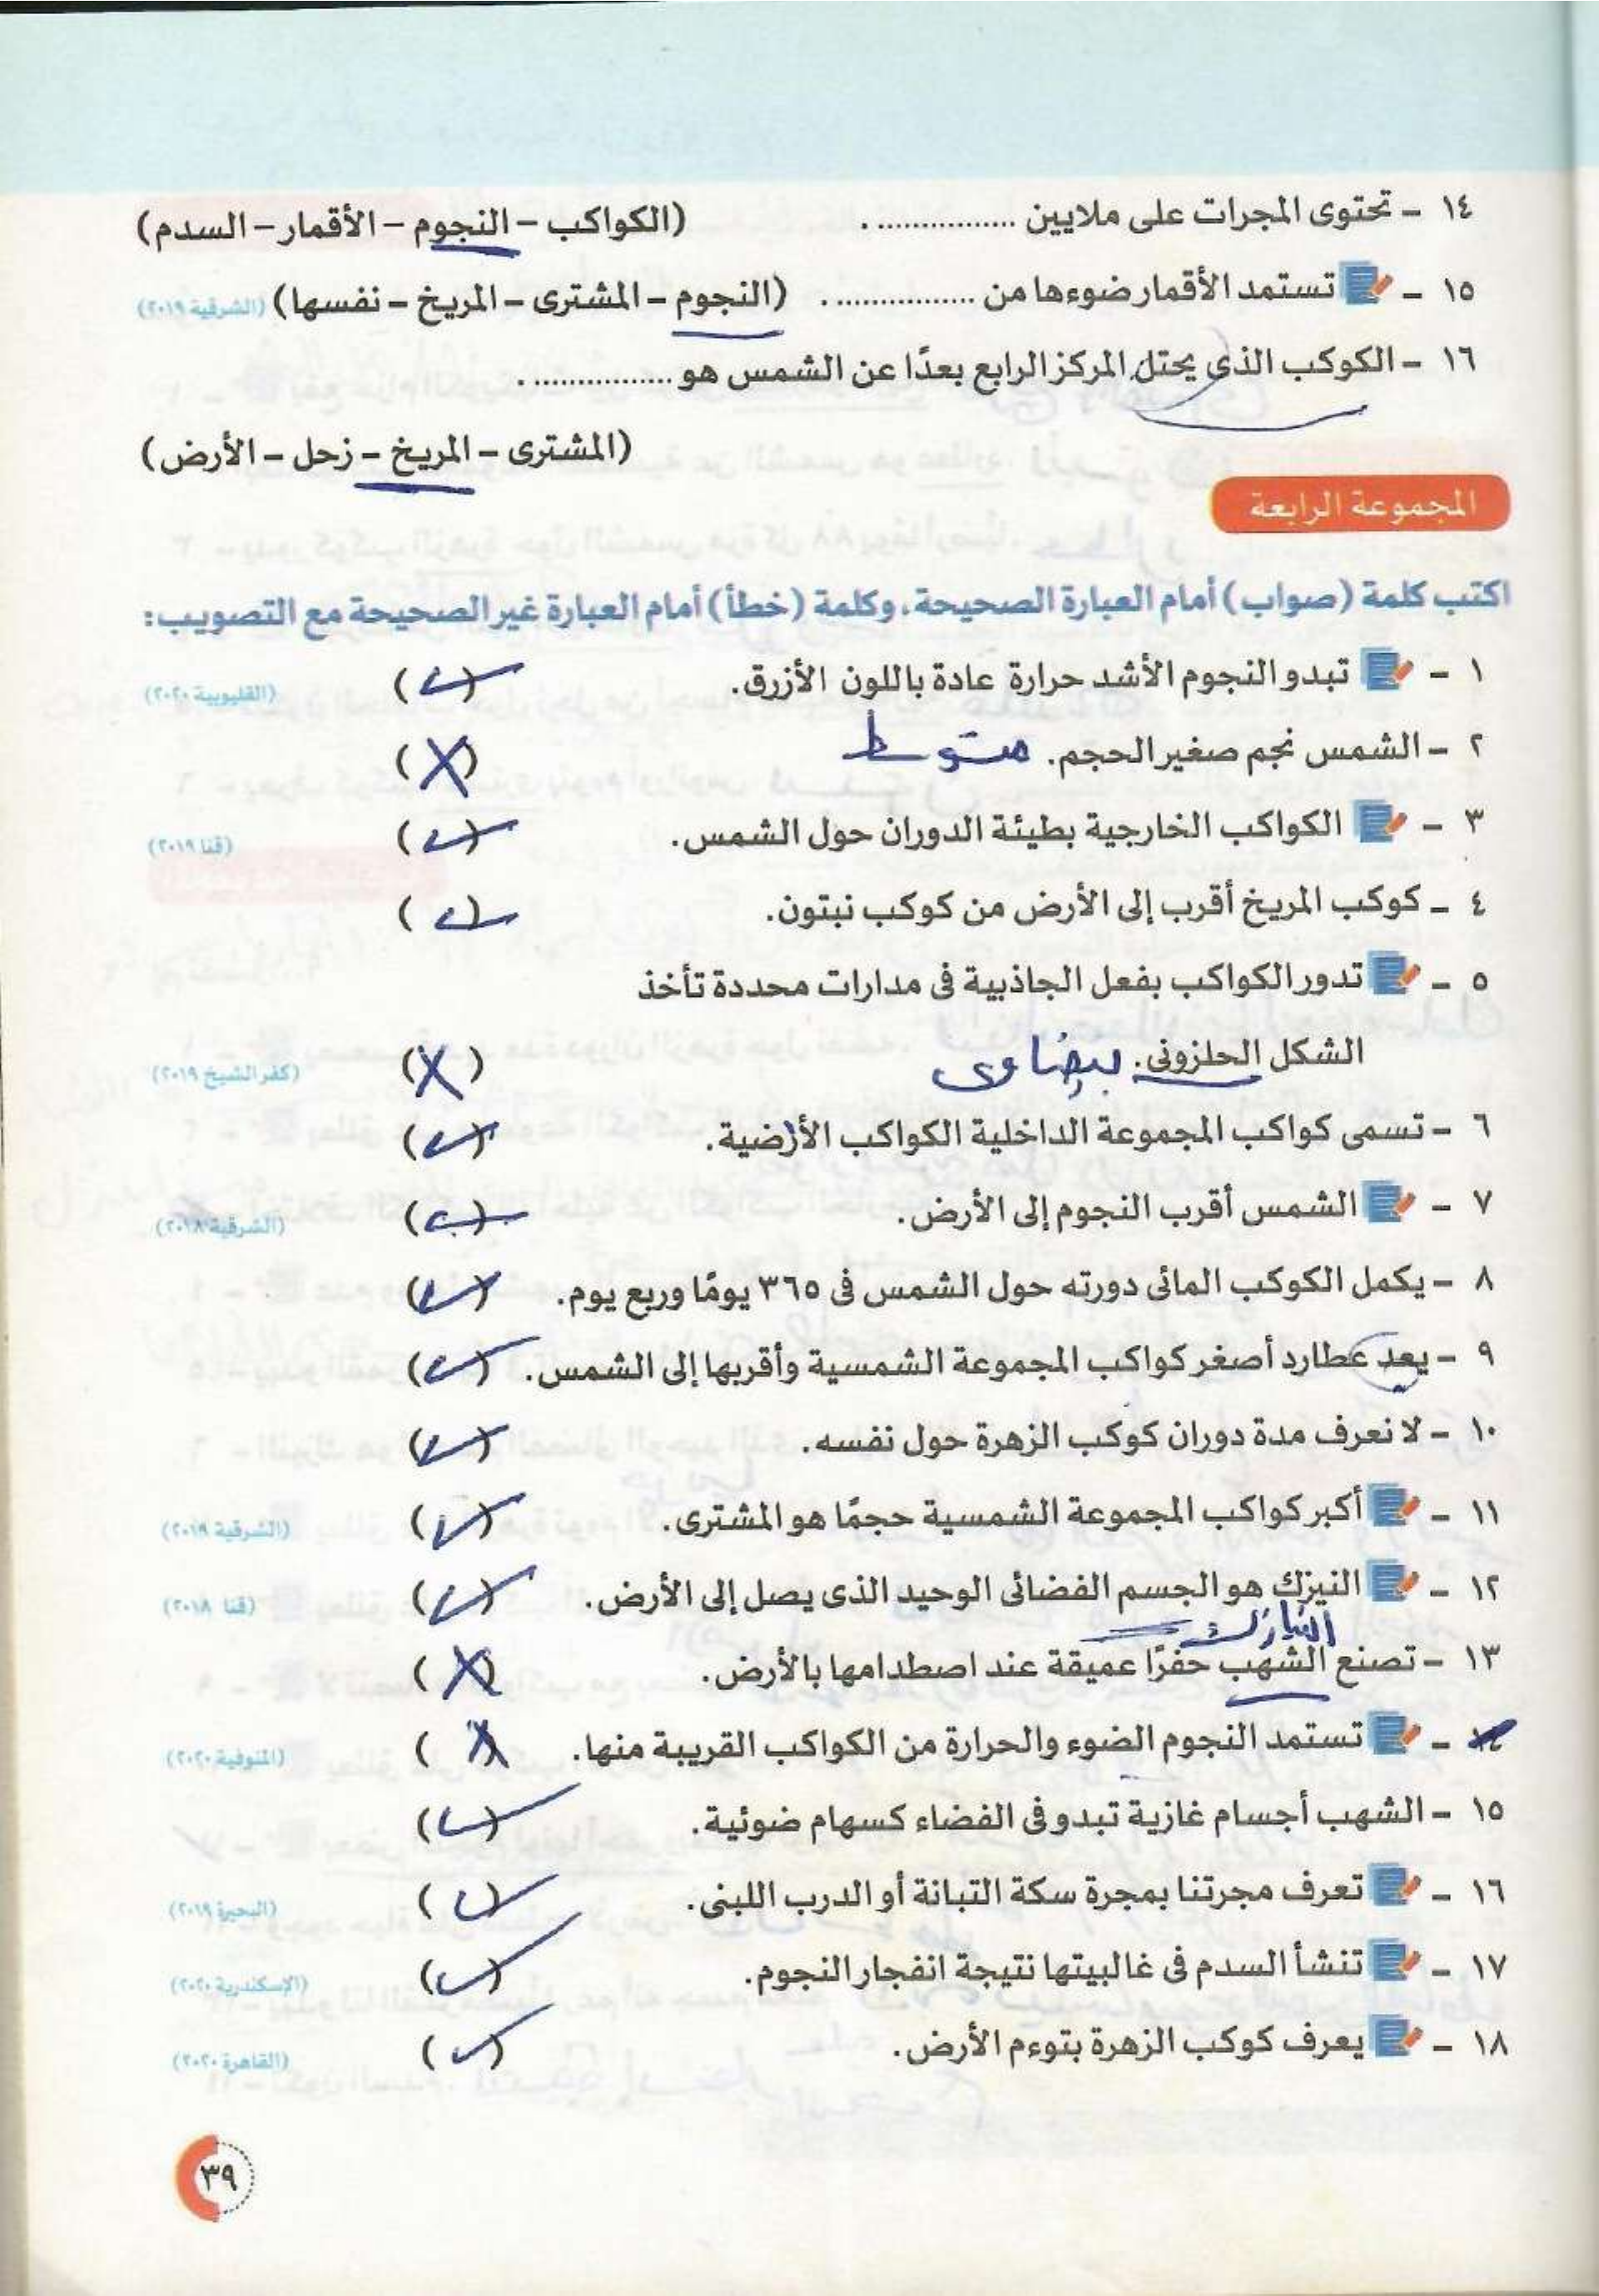 ١٤ - تحتوى المجرات على ملايين ................ . (الكواكب – النجوم – الأقمار – السدم)
١٥ - تستمد الأقمار ضوءها من ................ . (النجوم – المشترى – المريخ – نفسها) (الشرقية ٢٠١٩)
١٦ - الكوكب الذى يحتل المركز الرابع بعدًا عن الشمس هو ................ .
(المشترى – المريخ – زحل – الأرض)
المجموعة الرابعة
اكتب كلمة (صواب) أمام العبارة الصحيحة، وكلمة (خطأ) أمام العبارة غير الصحيحة مع التصويب:
١ - تبدو النجوم الأشد حرارة عادة باللون الأزرق. (✓) (القليوبية ٢٠٢٠)
٢ - الشمس نجم صغير الحجم. متوسط (X)
٣ - الكواكب الخارجية بطيئة الدوران حول الشمس. (✓) (قنا ٢٠١٩)
٤ - كوكب المريخ أقرب إلى الأرض من كوكب نبتون. (✓)
٥ - تدور الكواكب بفعل الجاذبية فى مدارات محددة تأخذ
الشكل الحلزونى. بيضاوى (X) (كفر الشيخ ٢٠١٩)
٦ - تسمى كواكب المجموعة الداخلية الكواكب الأرضية. (✓)
٧ - الشمس أقرب النجوم إلى الأرض. (✓) (الشرقية ٢٠١٨)
٨ - يكمل الكوكب المائى دورته حول الشمس فى ٣٦٥ يومًا وربع يوم. (✓)
٩ - يعد عطارد أصغر كواكب المجموعة الشمسية وأقربها إلى الشمس. (✓)
١٠ - لا نعرف مدة دوران كوكب الزهرة حول نفسه. (✓)
١١ - أكبر كواكب المجموعة الشمسية حجمًا هو المشترى. (✓) (الشرقية ٢٠١٩)
١٢ - النيزك هو الجسم الفضائى الوحيد الذى يصل إلى الأرض. (✓) (قنا ٢٠١٨)
النيازك
١٣ - تصنع الشهب حفرًا عميقة عند اصطدامها بالأرض. (X)
١٤ - تستمد النجوم الضوء والحرارة من الكواكب القريبة منها. (X) (المنوفية ٢٠٢٠)
١٥ - الشهب أجسام غازية تبدو فى الفضاء كسهام ضوئية. (✓)
١٦ - تعرف مجرتنا بمجرة سكة التبانة أو الدرب اللبنى. (✓) (البحيرة ٢٠١٩)
١٧ - تنشأ السدم فى غالبيتها نتيجة انفجار النجوم. (✓) (الإسكندرية ٢٠٢٠)
١٨ - يعرف كوكب الزهرة بتوءم الأرض. (✓) (القاهرة ٢٠٢٠)
٣٩